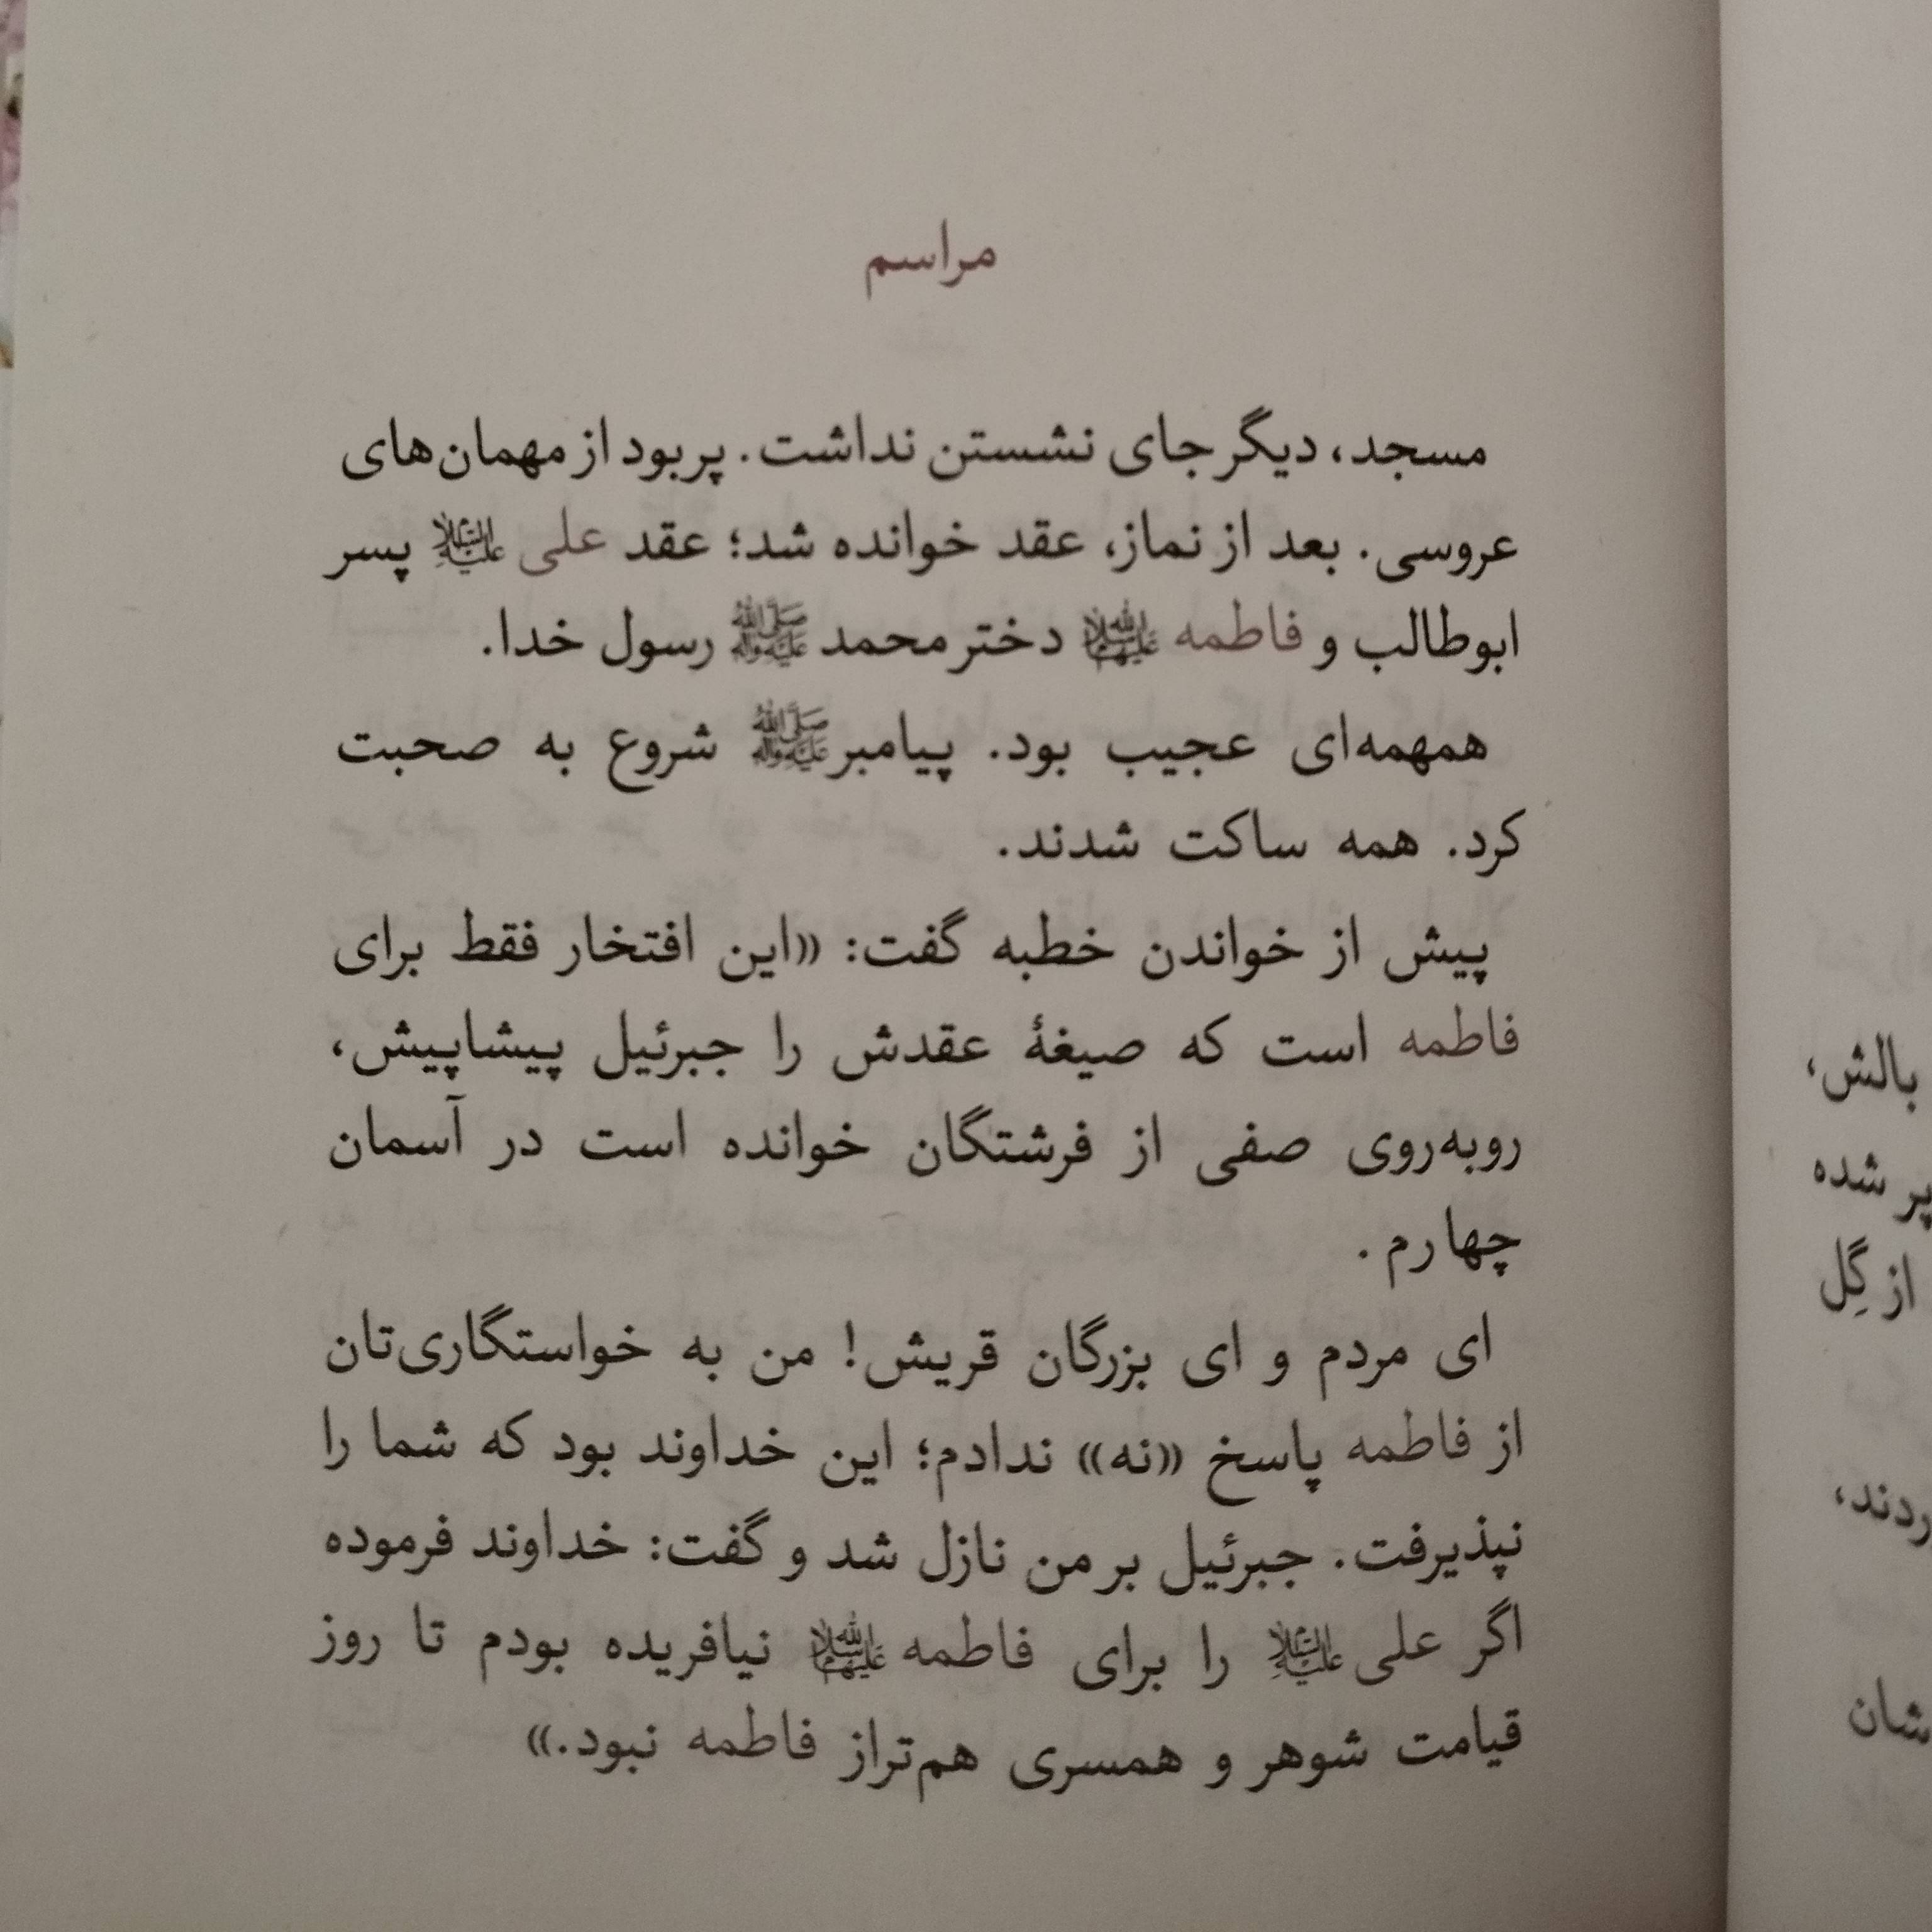 مراسم
مسجد، دیگر جای نشستن نداشت. پر بود از مهمان‌های
عروسی. بعد از نماز، عقد خوانده شد؛ عقد علی علیه‌السلام پسر
ابوطالب و فاطمه سلام‌الله‌علیها دختر محمد صلی‌الله‌علیه‌وآله رسول خدا.
همهمه‌ای عجیب بود. پیامبر صلی‌الله‌علیه‌وآله شروع به صحبت
کرد. همه ساکت شدند.
پیش از خواندن خطبه گفت: «این افتخار فقط برای
فاطمه است که صیغهٔ عقدش را جبرئیل پیشاپیش،
روبه‌روی صفی از فرشتگان خوانده است در آسمان
چهارم.
ای مردم و ای بزرگان قریش! من به خواستگاری‌تان
از فاطمه پاسخ «نه» ندادم؛ این خداوند بود که شما را
نپذیرفت. جبرئیل بر من نازل شد و گفت: خداوند فرموده
اگر علی علیه‌السلام را برای فاطمه سلام‌الله‌علیها نیافریده بودم تا روز
قیامت شوهر و همسری هم‌تراز فاطمه نبود.»
بالش،
پر شده
از گِل
ردند،
شان